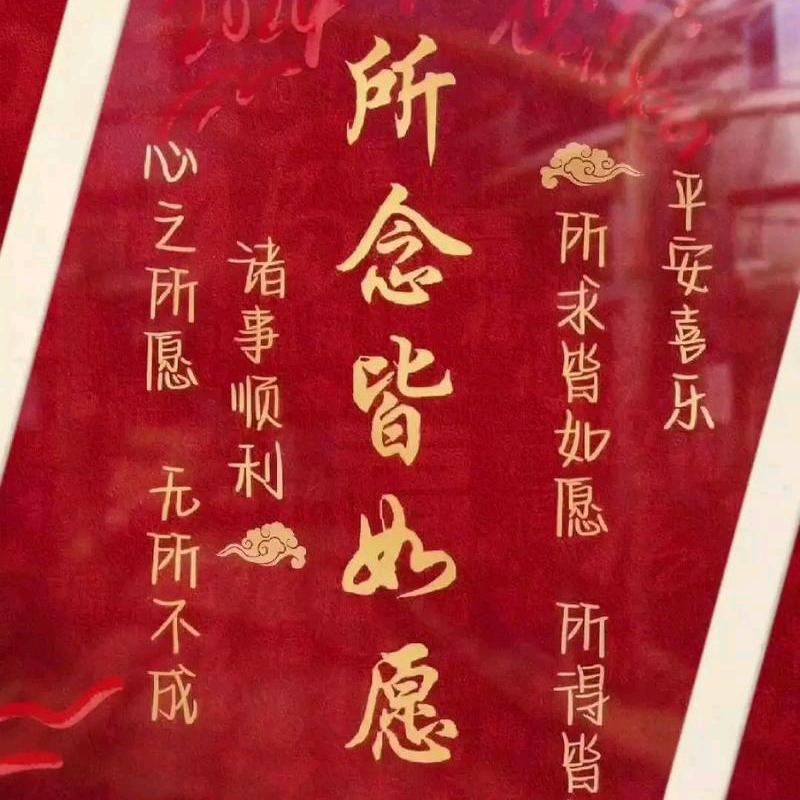 平安喜乐
所求皆如愿 所得皆
所念皆如愿
诸事顺利
心之所愿 无所不成
2024